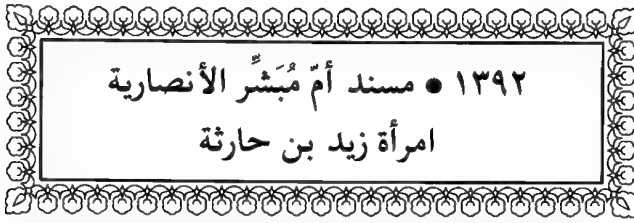 ١٣٩٢ • مسند أمّ مُبَشِّر الأنصارية
امرأة زيد بن حارثة